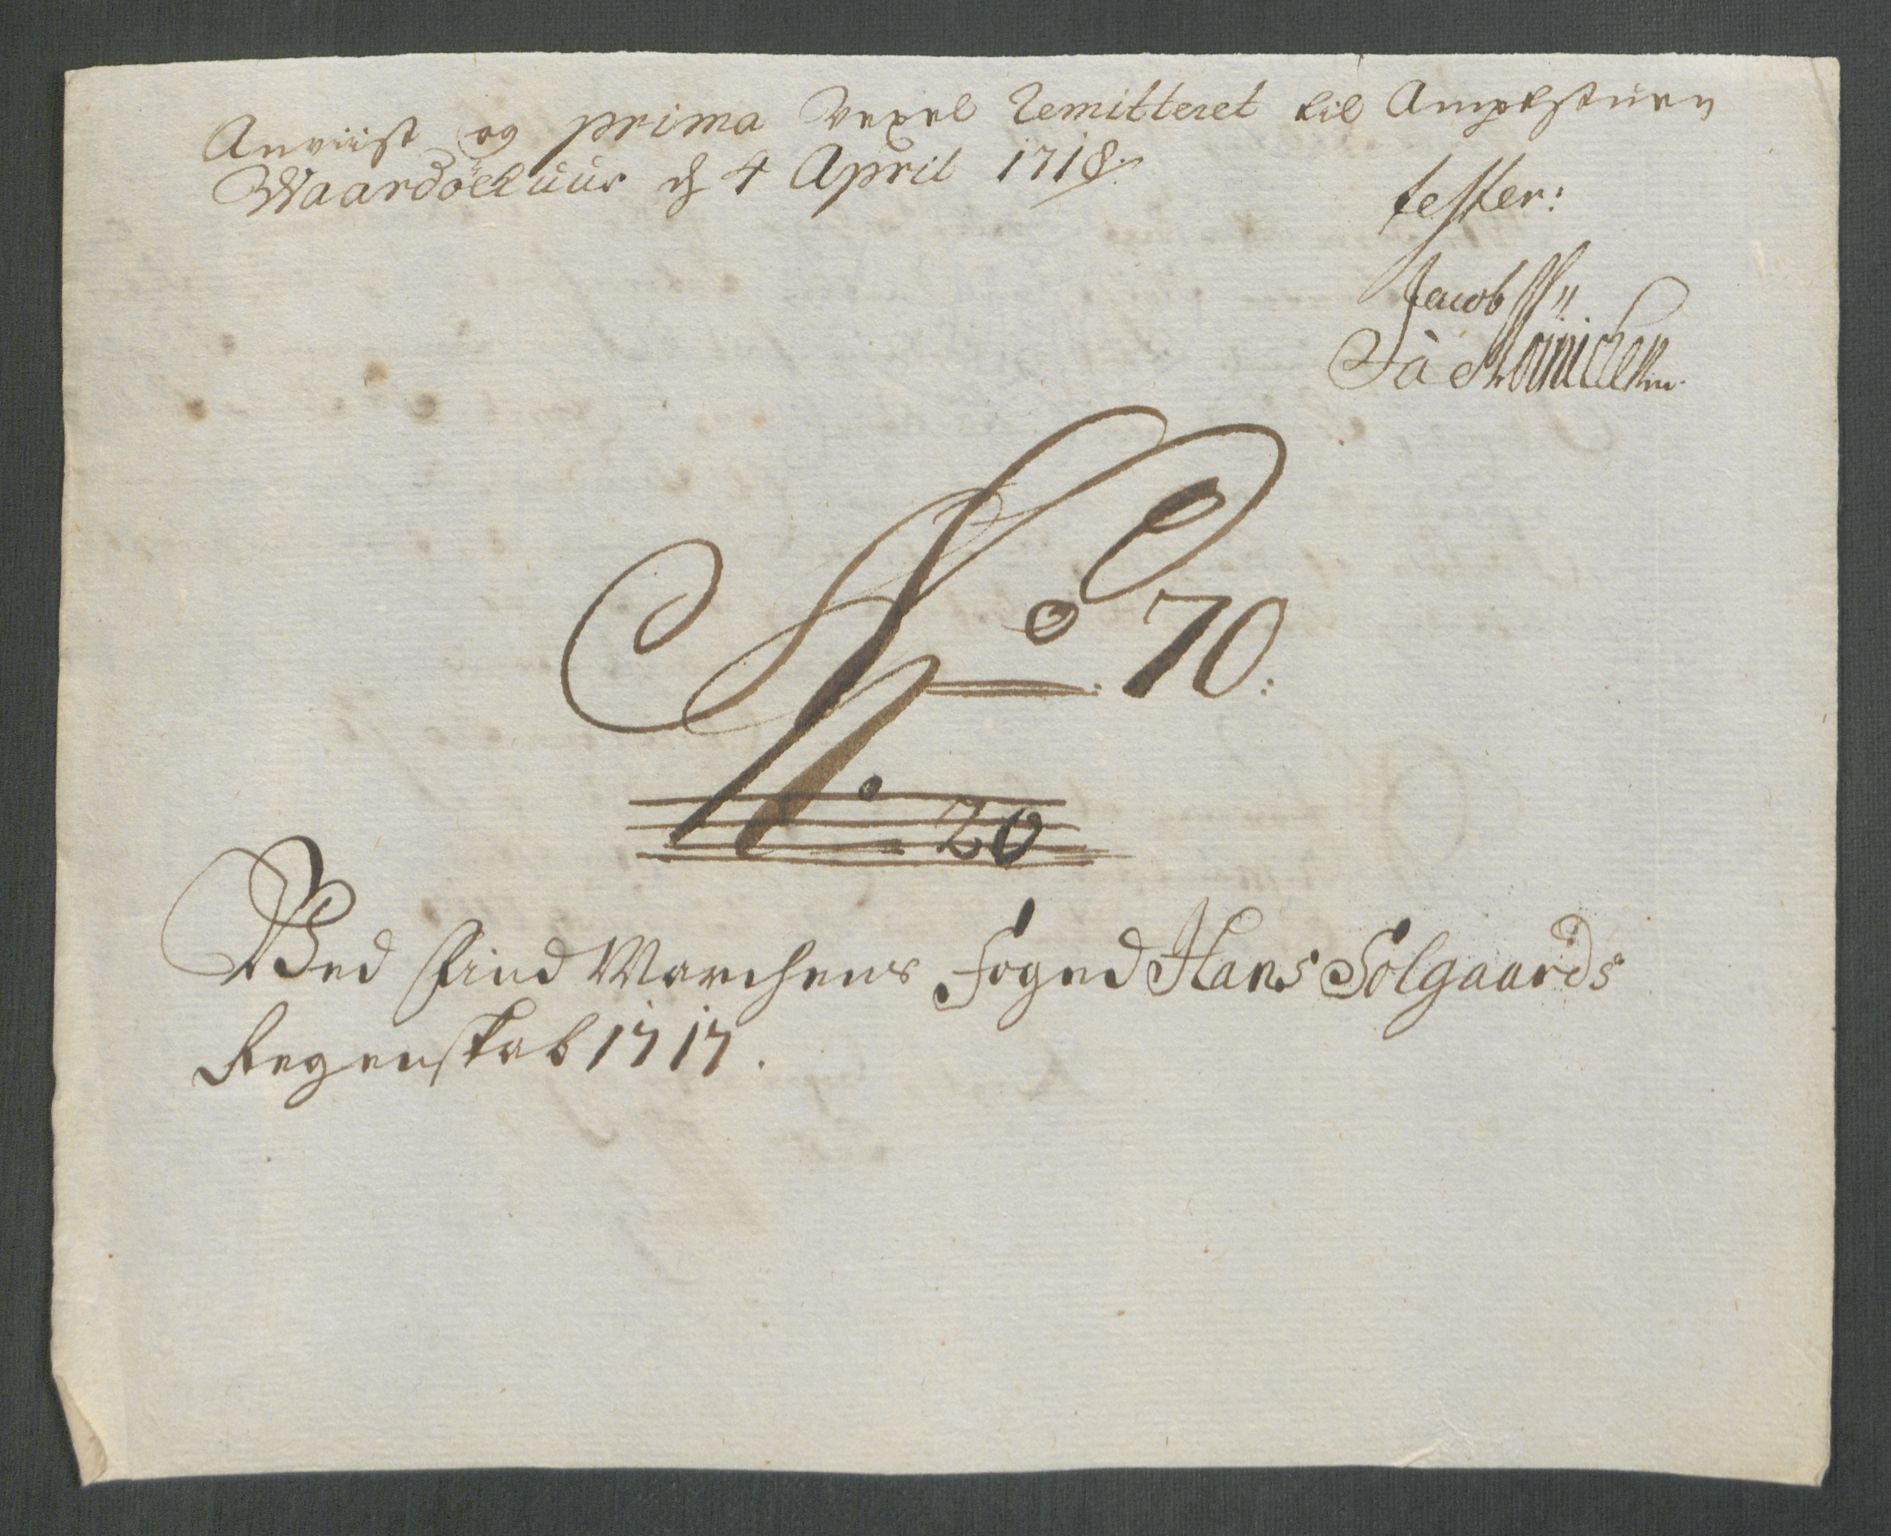 Anviist og prima Vexel Remitteret til Ampkstuen
Waardöehuus d 4 April 1718.
tester:
Jacob
No 70.
N. 20
Ved Find Marchens Foged Hans Solgaards
Regenskab 1717.